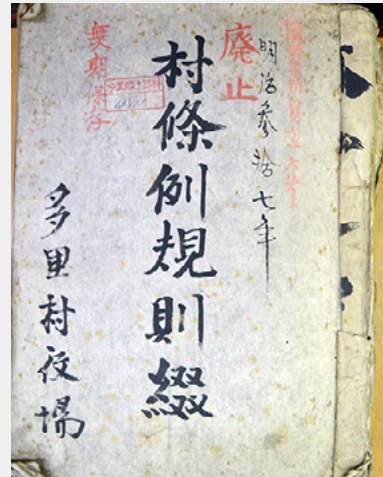 明治參拾七年
廃止
村條例規則綴
無期保存
多里村役場